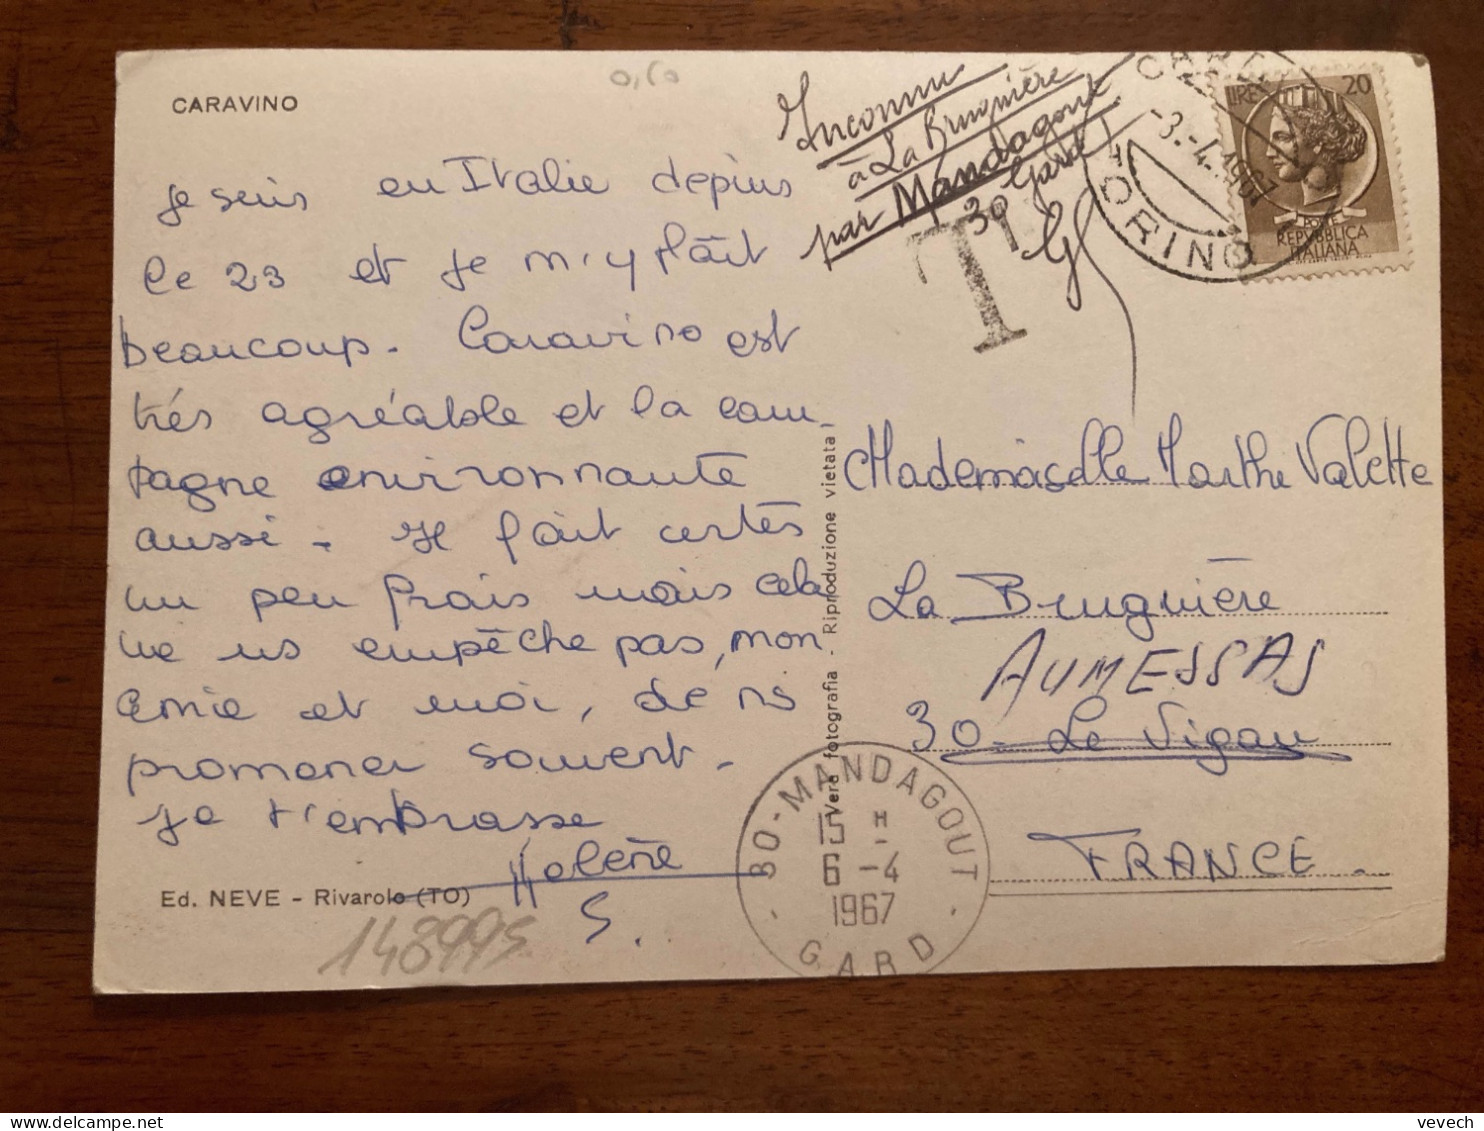 CARAVINO
0,60
Je suis en Italie depuis
le 23 et je m'y plaît
beaucoup. Caravino est
très agréable et la cam-
pagne environnante
aussi. Il fait certes
un peu frais mais cela
ne ns empêche pas, mon
amie et moi, de ns
promener souvent.
Je t'embrasse
Hélène
S.
Ed. NEVE - Rivarolo (TO)
148995
Vera fotografia - Riproduzione vietata
Inconnu
à La Brugnière
par Mandagout
30 Gard
T
TORINO
-3.-4.1967
LIRE 20
POSTE
REPVBBLICA
ITALIANA
Mademoiselle Marthe Valette
La Brugnière
AUMESSAS
30 - Le Vigan
FRANCE.
30-MANDAGOUT
15 H
6 -4
1967
GARD
vevech